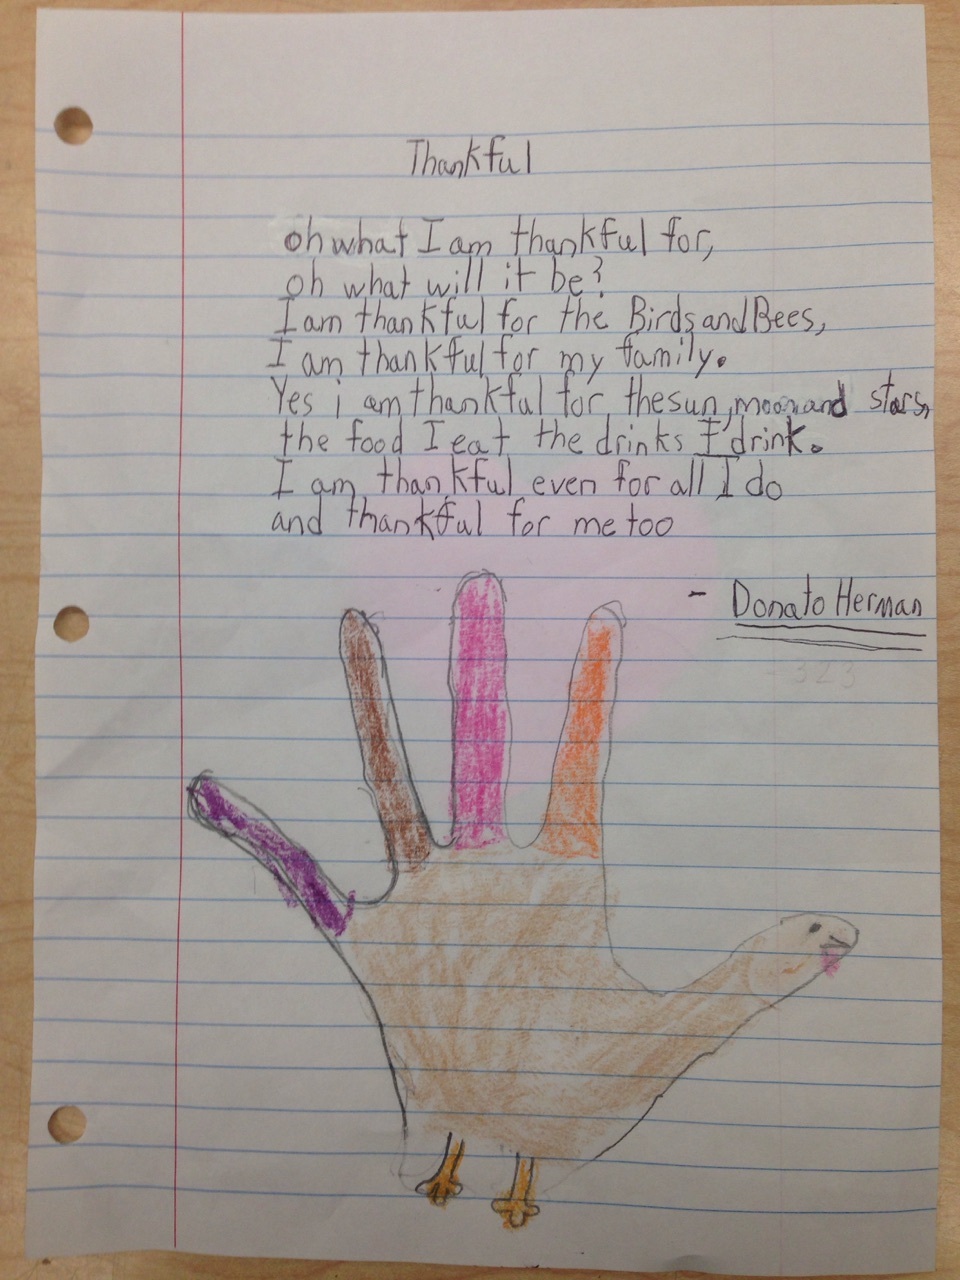 Thankful
oh what I am thankful for,
oh what will it be?
I am thankful for the Birds and Bees,
I am thankful for my family.
Yes i am thankful for the sun, moon and stars,
the food I eat the drinks I drink.
I am thankful even for all I do
and thankful for me too
- Donato Herman
323